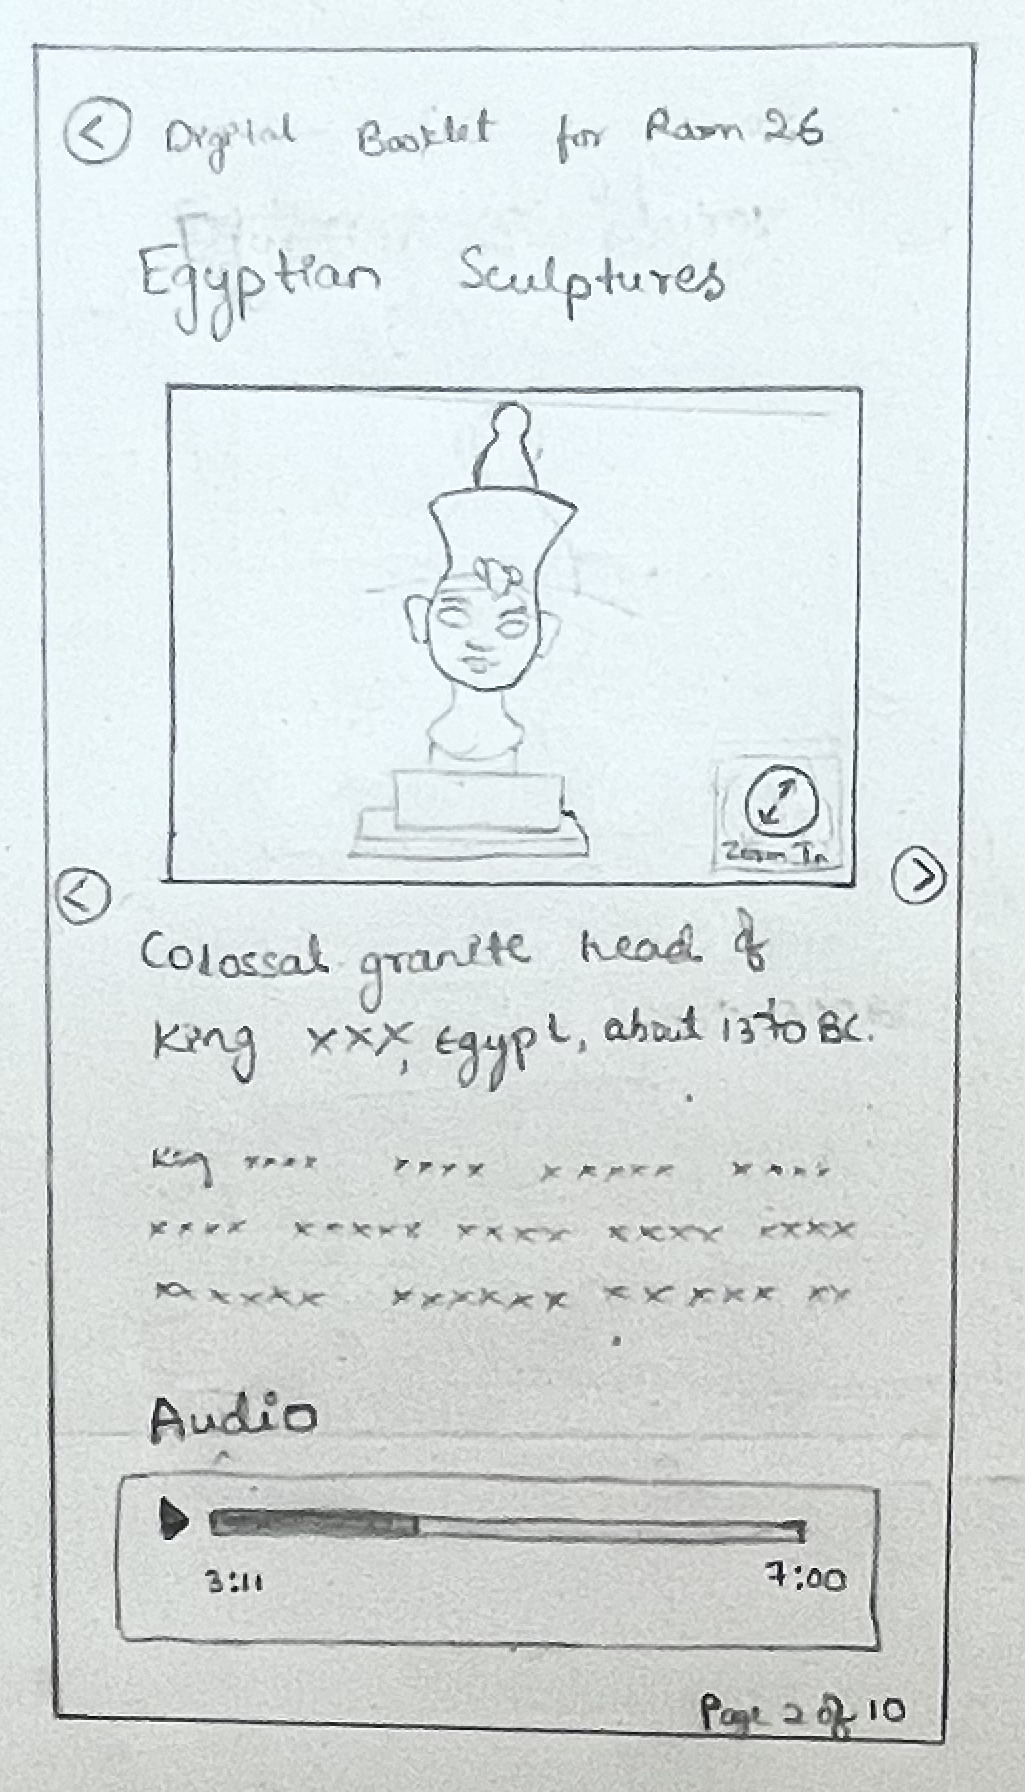 < Digital Booklet for Room 26
Egyptian Sculptures
Zoom In
< >
Colossal granite head of
King xxx, Egypt, about 1370 BC.
King xxxx xxxx xxxxx xxxx
xxxx xxxxx xxxx xxxx xxxx
xxxxx xxxxxx xxxxx xx
Audio
3:11 7:00
Page 2 of 10